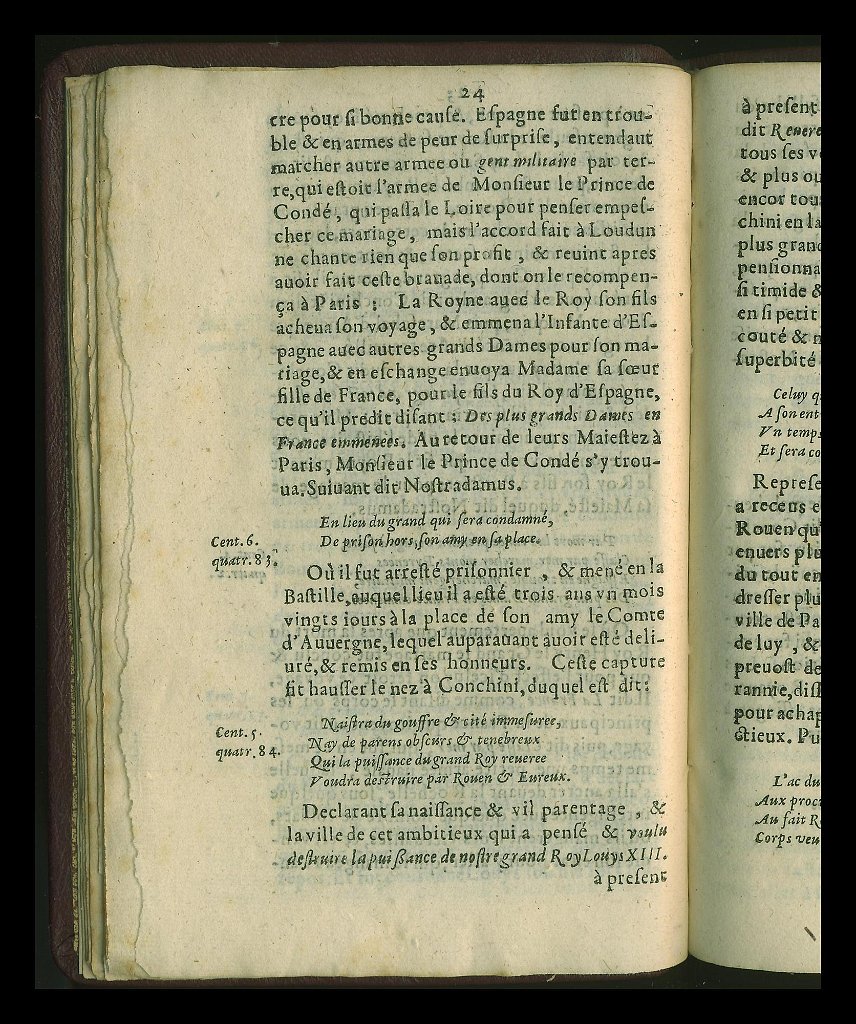 24
cre pour ſi bonne cauſe. Eſpagne fut en trou-
ble & en armes de peur de ſurpriſe, entendant
marcher autre armee ou gent militaire par ter-
re, qui eſtoit l'armee de Monſieur le Prince de
Condé, qui paſſa le Loire pour penſer empeſ-
cher ce mariage, mais l'accord fait à Loudun
ne chante rien que ſon profit, & reuint apres
auoir fait ceſte brauade, dont on le recompen-
ça à Paris : La Royne auec le Roy ſon fils
acheua ſon voyage, & emmena l'Infante d'Eſ-
pagne auec autres grands Dames pour ſon ma-
riage, & en eſchange enuoya Madame ſa sœur
fille de France, pour le fils du Roy d'Eſpagne,
ce qu'il predit diſant : Des plus grands Dames en
France emmenees. Au retour de leurs Maieſtez à
Paris, Monſieur le Prince de Condé s'y trou-
ua. Suiuant dit Noſtradamus.
En lieu du grand qui ſera condamné,
Cent. 6.
De priſon hors, ſon amy en ſa place.
quatr. 83.
Où il fut arreſté priſonnier , & mené en la
Baſtille, auquel lieu il a eſté trois ans vn mois
vingts iours à la place de ſon amy le Comte
d'Auuergne, lequel auparauant auoir eſté deli-
uré, & remis en ſes honneurs. Ceſte capture
fit hauſſer le nez à Conchini, duquel eſt dit:
Naiſtra du gouffre & cité immeſuree,
Cent. 5.
Nay de parens obſcurs & tenebreux
quatr. 84.
Qui la puiſſance du grand Roy reueree
Voudra deſtruire par Rouen & Eureux.
Declarant ſa naiſſance & vil parentage , &
la ville de cet ambitieux qui a penſé & voulu
deſtruire la puiſſance de noſtre grand Roy Louys XIII.
à preſent
à preſent
dit Reuere
tous ſes
& plus
encor
chini en
plus
ſi timide &
en ſi petit
couté &
ſuperbité
Celuy
A ſon
Vn temps
Et ſera
a recens
Rouen
enuers
du tout
dreſſer
ville de
de luy , &
preuoſt de
rannie,
pour
ctieux.
L'ac du
Aux
Au fait
Corps